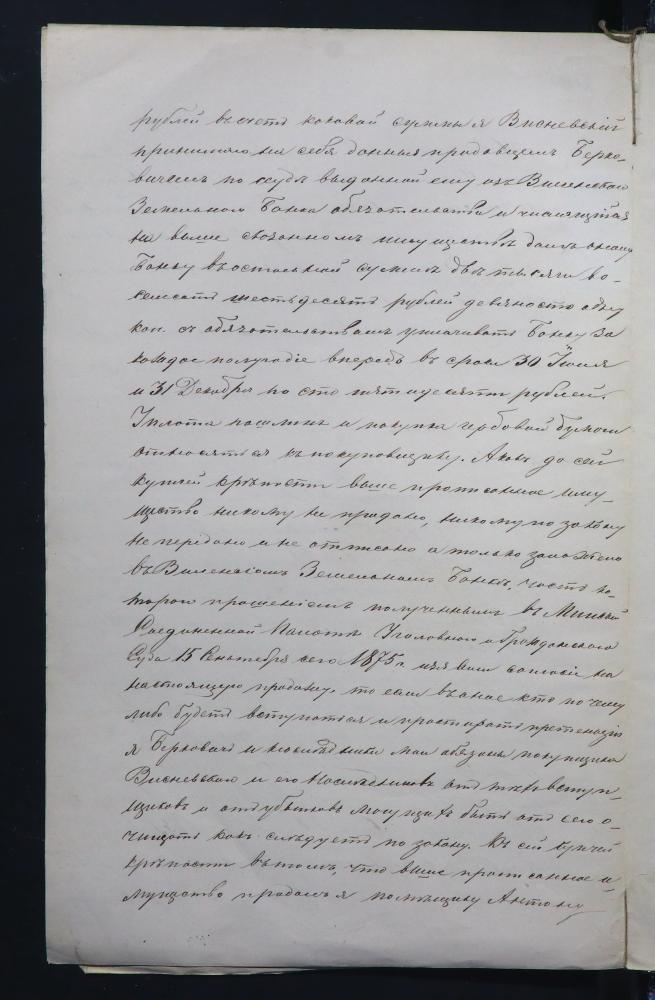 рублей въ счетъ каковой суммы я Висневскій
принимаю на себя данныя продавцемъ Берко-
вичемъ по ссудѣ выданной ему изъ Виленскаго
Земельнаго Банка обязательства и числящійся
на выше сказанномъ имуществѣ долгъ оному
Банку въ остальной суммѣ двѣ тысячи во-
семсотъ шестьдесятъ рублей девяносто одну
коп. съ обязательствомъ уплачивать Банку за
каждое полугодіе впередъ въ сроки 30 Іюня
и 31 Декабря по сто пятидесяти рублей.
Уплата пошлинъ и покупка гербовой бумаги
относятся къ покуповщику. А какъ до сей
купчей крѣпости выше прописанное иму-
щество никому не продано, никому по закону
не передано и не отписано а только заложено
въ Виленскомъ Земельномъ Банкѣ, часть ко-
тораго прошеніемъ полученнымъ въ Минской
Соединенной Палатѣ Уголовнаго и Гражданскаго
Суда 15 Сентября сего 1875 г. изъявил согласіе на
настоящую продажу. то если въ оное кто по чему
либо будетъ вступаться и простирать претензію
я Берковичъ и наслѣдники мои обязаны покупщика
Висневскаго и его Наслѣдниковъ отъ тѣхъ вступ-
щиковъ и отъ убытковъ могущихъ быть отъ сего о-
чищать какъ слѣдуетъ по закону. Къ сей купчей
крѣпости въ томъ, что выше прописанное и-
мущество продалъ я помѣщику Антону